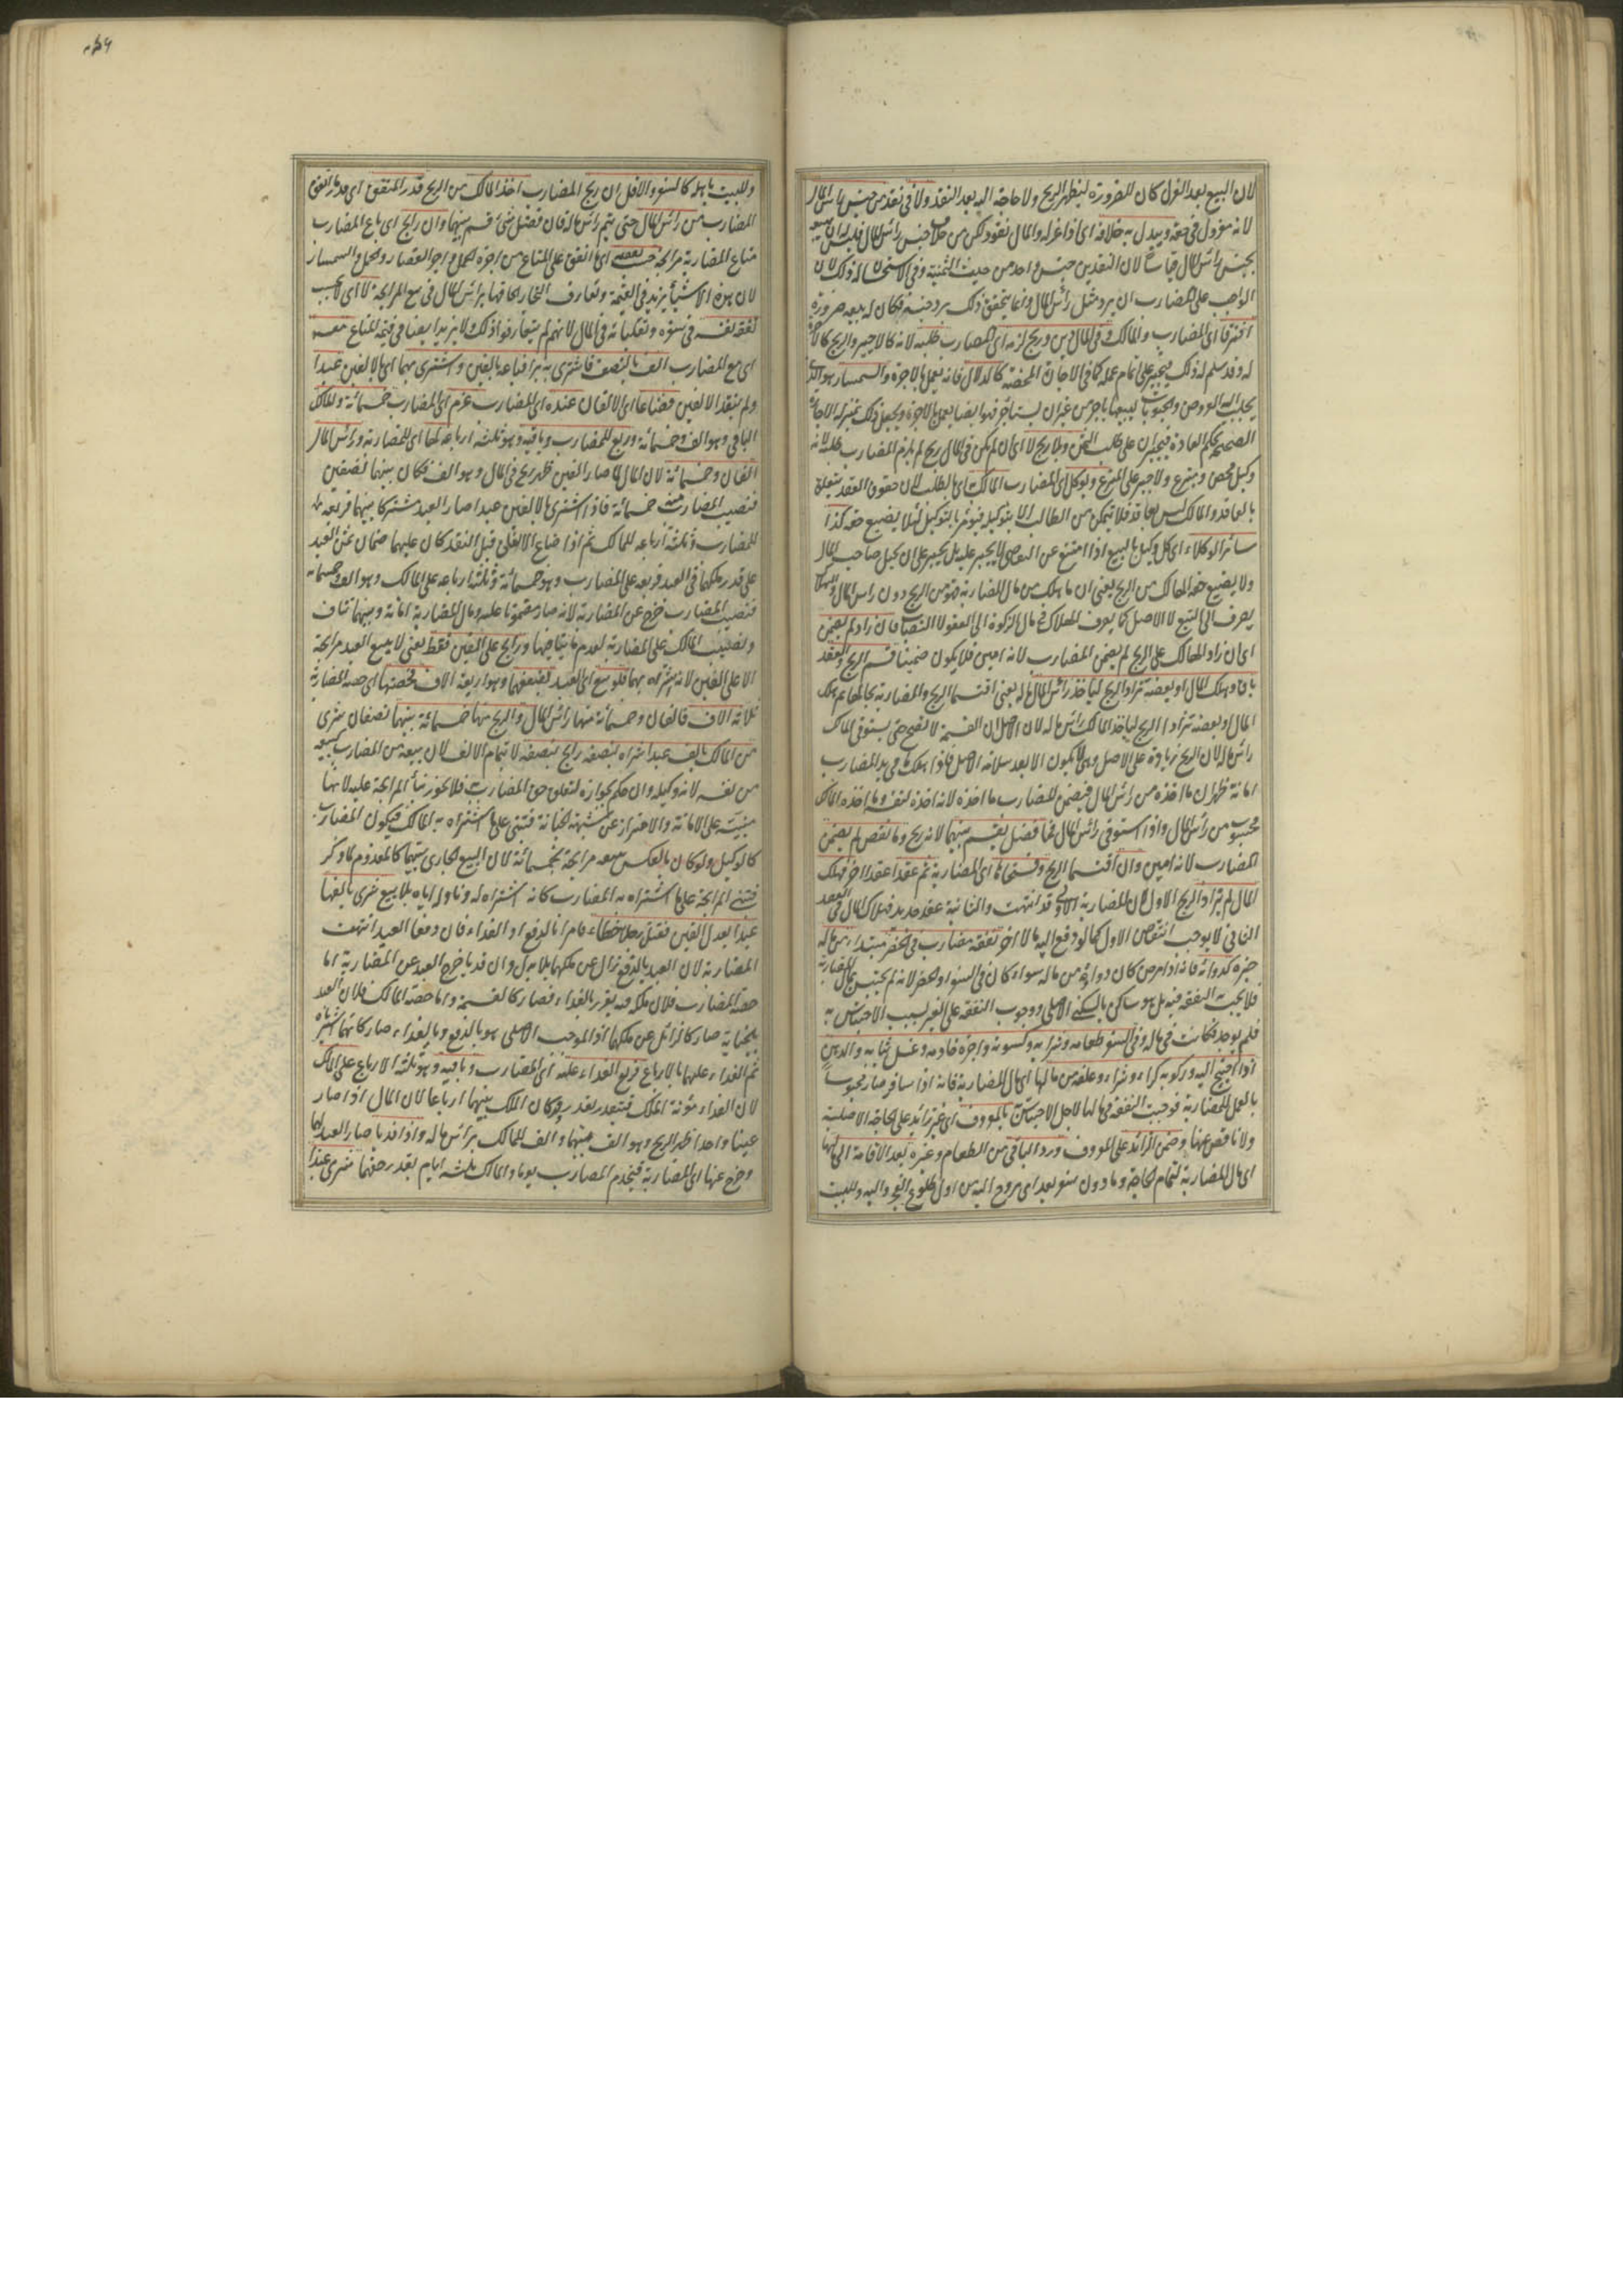 لان البيع بعد العزل كان للضرورة ليظهر الربح ولا حاجة اليه بعد النقد ولا فى نقد من جنس راس المال
لانه معزول فى حقه ويبدل به خلافه اى اذا عزله والمال نقود لكن من خلاف جنس رأس المال فليس له ان يبيعه
بجنس رأس المال قياسا لان النقدين جنس واحد من حيث الثمنية وفى الاستحسان له ذلك لان
الواجب على المضارب ان يرد مثل رأس المال وانما يتحقق ذلك برد جنسه فكان له بيعه ضرورة
افترقا اى المضارب والمالك وفى المال دين وربح لزمه اى المضارب طلبه لانه كالاجير والربح كالاجرة
له وقد سلم له ذلك فيجبر على تمام عمله كما فى الاجارة المحضة كالدلال فانه يعمل بالاجرة والسمسار هو الذى
يجلب اليه العروض والحبوبات ليبيعها باجر من غير ان يستاجر فهو ايضا يعمل بالاجرة ويجعل ذلك بمنزلة الاجارة
الصحيحة بحكم العادة فيجبران على طلب الثمن وبلا ربح لا اى ان لم يكن فى المال ربح لم يلزم المضارب طلبه لانه
وكيل محض ومتبرع ولا جبر على المتبرع ويوكل اى المضارب المالك اى بالطلب لان حقوق العقد يتعلق
بالعاقد والمالك ليس بعاقد فلا يتمكن من الطالب الا بتوكيله فيؤمر بالتوكيل لئلا يضيع حقه كذا
سائر الوكلاء اى كل وكيل بالبيع اذا امتنع عن التقاضى لا يجبر عليه بل يجبر على ان يحيل صاحب المال
ولا يضيع حقه الهالك من الربح يعنى ان ما هلك من مال المضاربة فهو من الربح دون راس المال
يصرف الى التبع لا الاصل كما يصرف الهلاك فى مال الزكوة الى العفو لا النصاب فان زاد لم يضمن
اى ان زاد الهالك على الربح لم يضمن المضارب لانه امين فلا يكون ضمينا قسم الربح والعقد
باق وهلك المال او بعضه ترادا الربح ليأخذ رأس المال ماله يعنى اقتسما الربح والمضاربة بحالها ثم هلك
المال او بعضه ترادا الربح ليأخذ المالك راس ماله لان الاصل ان القسمة لا تصح حتى يستوفى المالك
رأس ماله لان الربح زيادة على الاصل وهى لا تكون الا بعد سلامة الاصل فاذا هلك ما فى يد المضارب
امانة ظهر ان ما اخذه من رأس المال فيضمن المضارب ما اخذه لانه اخذه لنفسه وما اخذه المالك
محسوب من رأس المال واذا استوفى رأس المال فما فضل يقسم بينهما لانه ربح وما نقص لم يضمن
المضارب لانه امين وان اقتسما الربح وفسخاها اى المضاربة ثم عقدا عقدا اخر فهلك
المال لم يترادا الربح الاول لان المضاربة الاولى قد انتهت والثانية عقد جديد فهلاك المال فى العقد
الثانى لا يوجب انتقاض الاول كما لو دفع اليه مالا اخر نفقة مضارب فى الحضر مبتدأ من ماله
خبره كدوائه فانه اذا مرض كان دواؤه من ماله سواء كان فى السفر او الحضر لانه لم يحتبس بمال المضاربة
فلا يجب النفقة فيه بل هو ساكن بالسكنى الاصلى ووجوب النفقة على الغير بسبب الاحتباس به
فلم يوجد فكانت فى ماله وفى السفر طعامه وشرابه وكسوته واجرة خادمه وغسل ثيابه والدهن
اذا احتيج اليه وركوبه كراء وشراء وعلفه من مالها اى مال المضاربة فانه اذا سافر صار محبوسا
بالعمل للمضاربة فوجبت النفقة فى مالها لاجل الاحتباس بالمعروف اى غير زائد على الحاجة الاصلية
ولا ناقص عنها وضمن الزائد على المعروف ورد الباقى من الطعام وغيره بعد الاقامة الى مالها
اى مال المضاربة لتمام الحاجة وما دون سفر يغدو اى يروح اليه من اول طلوع الفجر واليه ولا يبيت
ولا يبيت باهله كالسفر والا فلا ان ربح المضارب اخذ المالك من الربح قدر المنفق اى قدر ما انفق
المضارب من رأس المال حتى يتم رأس ماله فان فضل شئ قسم بينهما وان رابح اى باع المضارب
متاع المضاربة مرابحة حسب نفقته اى ما انفق على المتاع من اجرة الحمل واجر القصار والحمل والسمسار
لان هذه الاشياء يزيد فى القيمة وتعارف التجار الحاقها برأس المال فى بيع المرابحة لا اى لا يحسب
نفقة نفسه فى سفره وتقلباته فى المال لانهم لم يتعارفوا ذلك ولا يزيد ايضا فى قيمة المتاع معه
اى مع المضارب الف بالنصف فاشترى به بزا فباعه بالفين واشترى بهما اى بالالفين عبدا
ولم ينقد الالفين فضاعا اى الالفان عنده اى المضارب غرم اى المضارب خمسمائة والمالك
الباقى وهو الف وخمسمائة وربع للمضارب وباقيه وهو ثلثة ارباعه لها اى للمضاربة ورأس المال
الفان وخمسمائة لان المال لما صار الفين ظهر ربح فى المال وهو الف فكان بينهما نصفين
فنصيب المضارب منه خمسمائة فاذا اشترى بالالفين عبدا صار العبد مشتركا بينهما فربعه
للمضارب وثلثة ارباعه للمالك ثم اذا ضاع الالفان قبل النقد كان عليهما ضمان ثمن العبد
على قدر ملكهما فى العبد فربعه على المضارب وهو خمسمائة وثلثة ارباعه على المالك وهو الف وخمسمائة
فنصيب المضارب خرج عن المضاربة لانه صار مضمونا عليه ومال المضاربة امانة وبينهما تناف
ونصيب المالك على المضاربة لعدم ما ينافيها ورابح على الفين فقط يعنى لا يبيع العبد مرابحة
الا على الفين لانه اشتراه بهما فلو بيع اى العبد بضعفهما وهو اربعة الاف فحصتها اى حصة المضاربة
ثلاثة الاف فالفان وخمسمائة منها رأس المال والربح منها خمسمائة بينهما نصفان شرى
من المالك بالف عبدا شراه بنصفه رابح بنصفه لا بتمام الالف لان بيعه من المضارب كبيعه
من نفسه لانه وكيله وان حكم بجوازه لتعلق حق المضارب فلا يجوز بناء المرابحة عليه لانها
مبنية على الامانة والاحتراز عن شبهة الخيانة فتبنى على ما اشتراه به المالك فيكون المضارب
كالوكيل ولو كان بالعكس يبيعه مرابحة بخمسمائة لان البيع الجارى بينهما كالمعدوم لما ذكر
فتبنى المرابحة على ما اشتراه به المضارب كانه اشتراه له وناوله اياه بلا بيع شرى بالفها
عبدا يعدل الفين فقتل رجلا خطاء فامرا بالدفع او الفداء فان دفعا العبد انتهت
المضاربة لان العبد بالدفع زال عن ملكهما بلا بدل وان فديا خرج العبد عن المضاربة اما
حصة المضارب فلان ملكه فيه يقرر بالفداء فصار كالقسمة واما حصة المالك فلان العبد
بالجناية صار كالزائل عن ملكهما اذ الموجب الاصلى هو الدفع وبالفداء صار كانهما اشترياه
ثم الفداء عليهما بالارباع فربع الفداء عليه اى المضارب وباقيه وهو ثلثة الارباع على المالك
لان الفداء مؤنة الملك فيتقدر بقدره وقد كان الملك بينهما ارباعا لان المال اذا صار
عينا واحدا ظهر الربح وهو الف بينهما والف للمالك برأس ماله واذا فديا صار العبد لهما
وخرج عنها اى المضاربة فيخدم المضارب يوما والمالك ثلثة ايام بقدر حقهما شرى عبدا